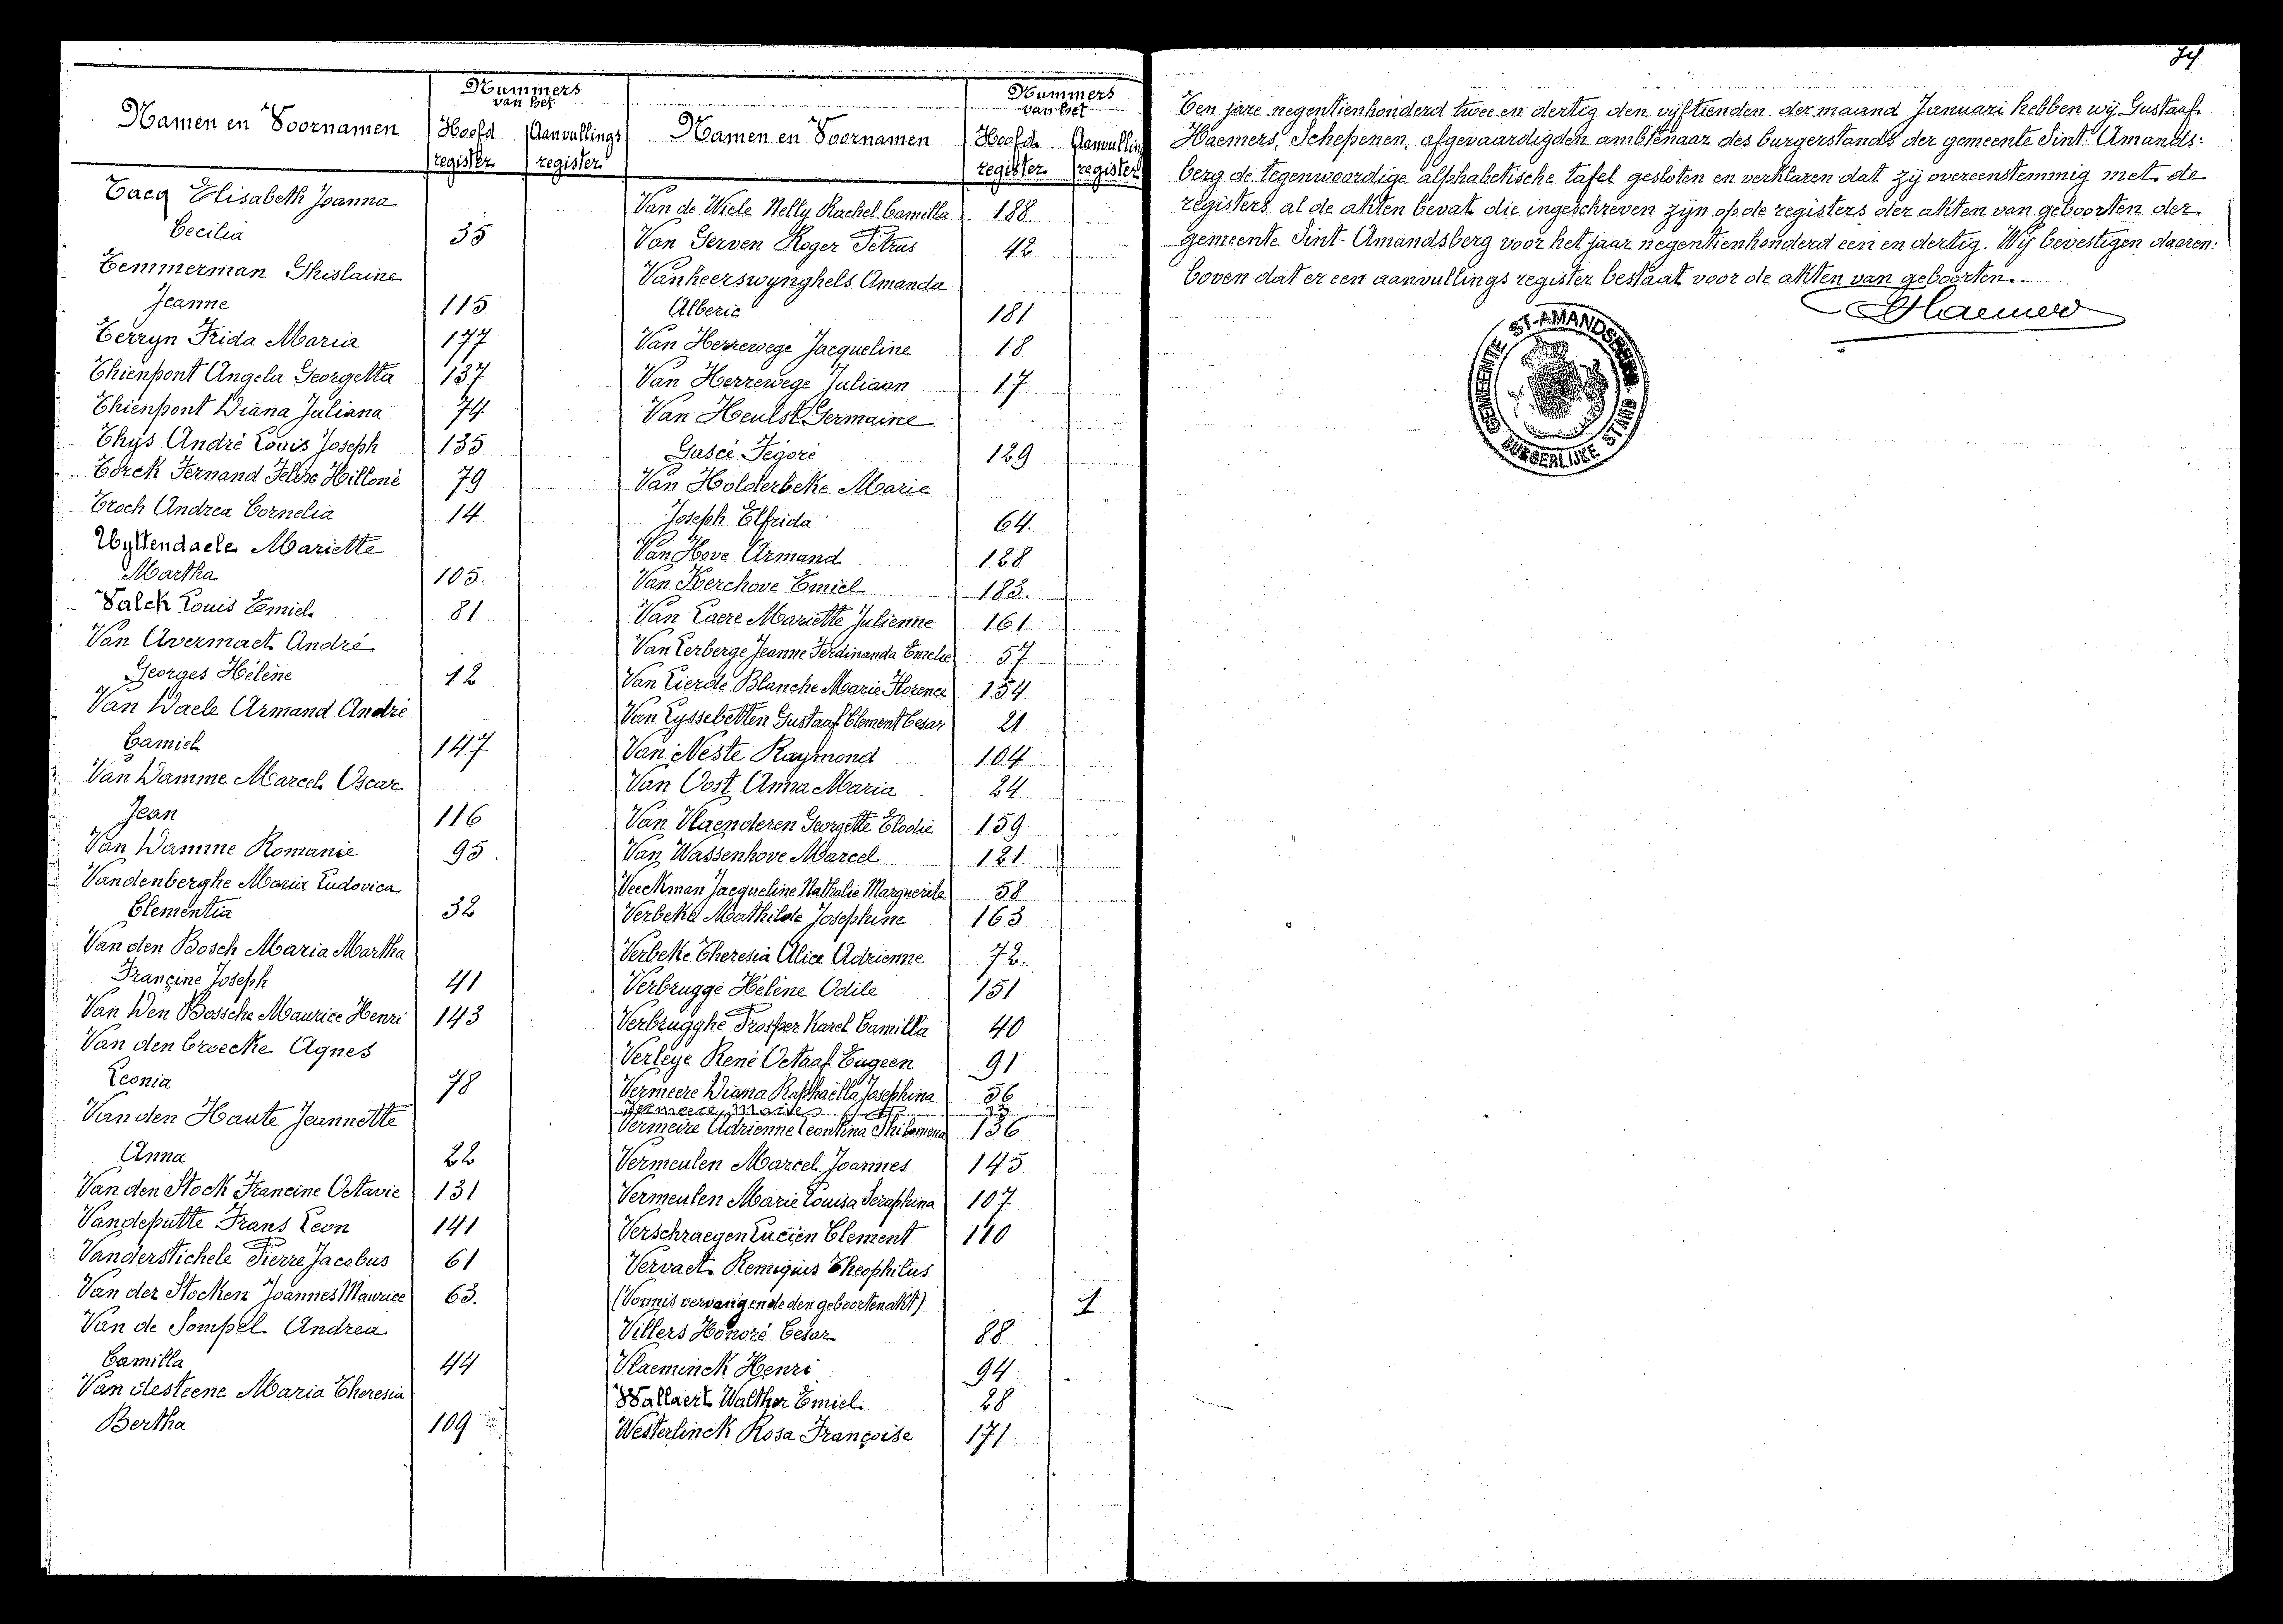 Namen en Voornamen
Nummers
van het
Hoofd
register
Aanvullings
register
Tacq Elisabeth Joanna
Cecilia 35
Temmerman Ghislaine
Jeanne 115
Terryn Frida Maria 177
Thienpont Angela Georgetta 137
Thienpont Diana Juliana 74
Thijs André Louis Joseph 135
Torck Fernand Hilloné 79
Troch Andrea Cornelia 14
Uyttendaele Mariette
Martha 105.
Valck Louis Emiel 81
Van Avermaet André
Georges Hélène 12
Van Daele Armand André
Camiel 147
Van Damme Marcel Oscar
Jean 116
Van Damme Romanie 95.
Vandenberghe Maria Ludovica
Clementia 32
Van den Bosch Maria Martha
Françine Joseph 41
Van Den Bossche Maurice Henri 143
Van den Broecke Agnes
Leonia 78
Van den Haute Jeannette
Anna 22
Van den Stock Francine Octavie 131
Vandeputte Frans Leon 141
Vanderstichele Pierre Jacobus 61
Van der Stocken Joannes Maurice 63.
Van de Sompel Andrea
Camilla 44
Van desteene Maria Theresia
Bertha 109
Namen en Voornamen
Nummers
van het
Hoofd
register
Aanvulling
register
Van de Wiele Nelly Rachel Camilla 188
Van Gerven Roger Petrus 42
Vanheerswynghels Amanda
Alberic 181
Van Herrewege Jacqueline 18
Van Herrewege Juliaan 17
Van Heulst Germaine
129
Van Holderbeke Marie
Joseph Elfrida 64.
Van Hove Armand 128
Van Kerchove Emiel 183.
Van Laere Mariette Julienne 161
Van Lerberge Jeanne Ferdinanda 57
Van Lierde Blanche Marie Florence 154
Van Lyssebetten Gustaaf Clement Cesar 21
Van Neste Raymond 104
Van Oost Anna Maria 24
Van Vlaenderen Georgette Elodie 159
Van Wassenhove Marcel 121
Veeckman Jacqueline Nathalie Marguerite 58
Verbeke Mathilde Josephine 163
Verbeke Theresia Alice Adrienne 72.
Verbrugge Hélène Odile 151
Verbrugghe Prosper Karel Camilla 40
Verleye René Octaaf Eugeen 91
Vermeere Diana Raphaëlla Josephina 56
Vermeere Marie
Vermeire Adrienne Leontina Philomena 136
Vermeulen Marcel Joannes 145.
Vermeulen Marie Louisa Seraphina 107
Verschraegen Lucien Clement 110
Vervaet Remigius Theophilus
(Vonnis vervangende den geboortenakt) 1
Villers Honoré Cesar 88
Vlaeminck Henri 94
Wallaert Walther Emiel 28
Westerlinck Rosa Françoise 171
Ten jare negentienhonderd twee en dertig den vijftienden der maand Januari hebben wij Gustaaf
Haemers, Schepenen, afgevaardigden ambtenaar des burgerstands der gemeente Sint-Amands:
berg de tegenwoordige alphabetische tafel gesloten en verklaren dat zij overeenstemmig met de
registers al de akten bevat die ingeschreven zijn op de registers der akten van geboorten der
gemeente Sint-Amandsberg voor het jaar negentienhonderd een en dertig. Wij bevestigen daaren:
boven dat er een aanvullings register bestaat voor de akten van geboorten.
Haemers
GEMEENTE ST-AMANDSBERG
BURGERLIJKE STAND